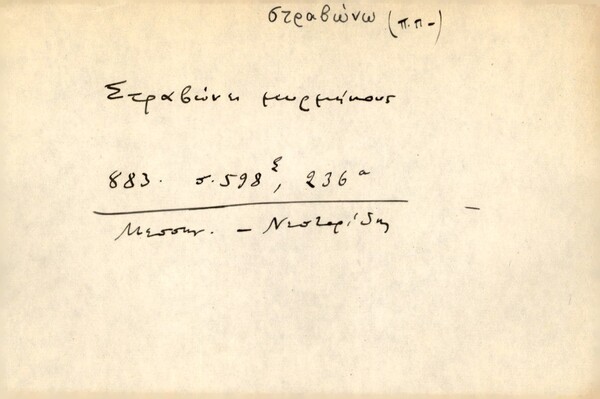 στραβώνω (π.π-)
Στραβώνει μυρμήκους
883. σ. 598ξ, 236α
Μεσσην. - Νεστορίδης